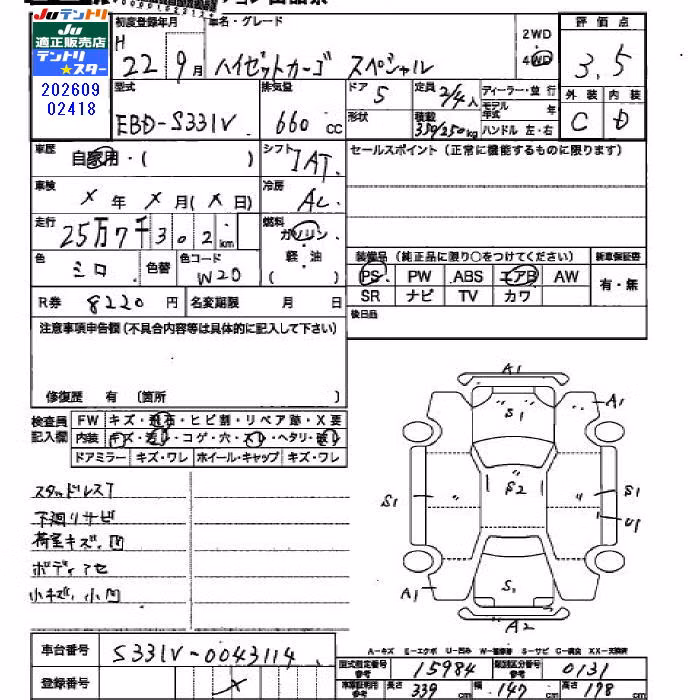 Juテントリ
JU
適正販売店
テントリ
★スター
202609
02418
初度登録年月 車名・グレード 2WD 4WD 評価点
H 22 9月 ハイゼットカーゴ スペシャル 3.5
型式 排気量 ドア 5 定員 2/4人 ディーラー・並行 外装 内装
EBD-S331V 660cc 形状 積載 350/250kg モデル年式 年 C D
ハンドル 左・右
車歴 自家用・( ) シフト IAT セールスポイント (正常に機能するものに限ります)
車検 × 年 × 月(× 日) 冷房 AC
走行 25万7千302km 燃料 ガソリン
軽・油
( )
色 シロ 色替 色コード W20
装備品 (純正品に限り○をつけてください) 新車保証書
PS PW ABS エアB AW 有・無
SR ナビ TV カワ
R券 8220円 名変期限 月 日
後日品
注意事項申告欄(不具合内容等は具体的に記入して下さい)
修復歴 有 (箇所 )
検査員記入欄
FW キズ・飛石・ヒビ割・リペア跡・X要
内装 キズ・汚れ・コゲ・穴・スレ・ヘタリ・破れ
ドアミラー キズ・ワレ ホイール・キャップ キズ・ワレ
スタッドレスT
下廻りサビ
荷室キズ、凹
ボディアセ
小キズ、小凹
A1
S1
A1
S1
S2
S1
U1
A1
S1
A2
A-キズ E-エクボ U-凹み W-補修跡 S-サビ C-腐食 XX-交換済
車台番号 S331V-0043114
登録番号 ×
型式指定番号 参考 15984 類別区分番号 参考 0131
車庫証明用 参考 長さ 339cm 幅 147cm 高さ 178cm